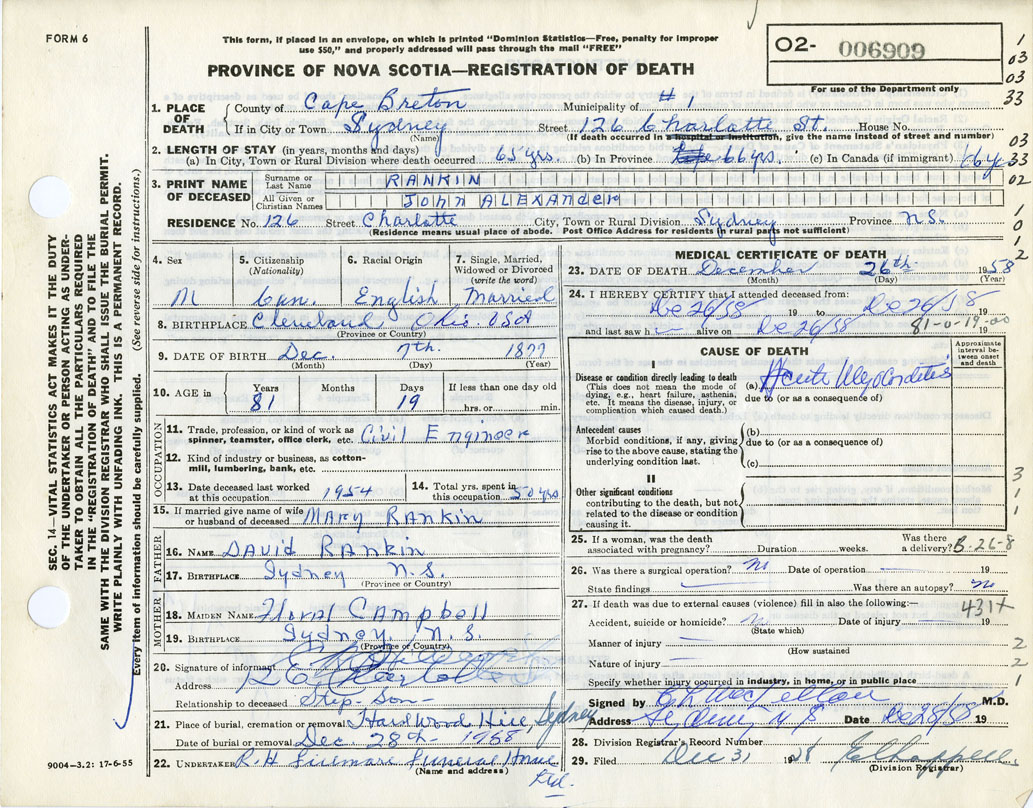 FORM 6
This form, if placed in an envelope, on which is printed "Dominion Statistics—Free, penalty for improper
use $50," and properly addressed will pass through the mail "FREE"
PROVINCE OF NOVA SCOTIA—REGISTRATION OF DEATH
02- 006909
For use of the Department only
1
03
03
33
03
33
02
1
0
1
2
SEC. 14—VITAL STATISTICS ACT MAKES IT THE DUTY
OF THE UNDERTAKER OR PERSON ACTING AS UNDER-
TAKER TO OBTAIN ALL THE PARTICULARS REQUIRED
IN THE "REGISTRATION OF DEATH" AND TO FILE THE
SAME WITH THE DIVISION REGISTRAR WHO SHALL ISSUE THE BURIAL PERMIT.
WRITE PLAINLY WITH UNFADING INK. THIS IS A PERMANENT RECORD.
Every item of information should be carefully supplied. (See reverse side for instructions.)
1. PLACE OF DEATH
County of Cape Breton Municipality of #1
If in City or Town Sydney Street 126 Charlotte St. House No.
(Name) (If death occurred in a hospital or institution, give the name instead of street and number)
2. LENGTH OF STAY (in years, months and days)
(a) In City, Town or Rural Division where death occurred 65 yrs. (b) In Province 66 yrs. (c) In Canada (if immigrant) 66 yrs
3. PRINT NAME OF DECEASED
Surname or Last Name RANKIN
All Given or Christian Names JOHN ALEXANDER
RESIDENCE No. 126 Street Charlotte City, Town or Rural Division Sydney Province N.S.
(Residence means usual place of abode. Post Office Address for residents in rural parts not sufficient)
4. Sex M
5. Citizenship (Nationality) Can.
6. Racial Origin English
7. Single, Married, Widowed or Divorced (write the word) Married
8. BIRTHPLACE Cleveland Ohio. USA
(Province or Country)
9. DATE OF BIRTH Dec. 7th. 1877
(Month) (Day) (Year)
10. AGE in Years 81 Months Days 19 If less than one day old hrs. or min.
OCCUPATION
11. Trade, profession, or kind of work as
spinner, teamster, office clerk, etc. Civil Engineer
12. Kind of industry or business, as cotton-
mill, lumbering, bank, etc.
13. Date deceased last worked at this occupation 1954
14. Total yrs. spent in this occupation 50 yrs
15. If married give name of wife or husband of deceased Mary Rankin
FATHER
16. NAME David Rankin
17. BIRTHPLACE Sydney N.S.
(Province or Country)
MOTHER
18. MAIDEN NAME Floral Campbell
19. BIRTHPLACE Sydney. N.S.
(Province or Country)
20. Signature of informant
Address
Relationship to deceased Step-Son
21. Place of burial, cremation or removal Hardwood Hill, Sydney
Date of burial or removal Dec. 28th - 1958
22. UNDERTAKER Funeral Home Ltd.
(Name and address)
9004—3.2: 17-6-55
MEDICAL CERTIFICATE OF DEATH
23. DATE OF DEATH December 26th. 1958
(Month) (Day) (Year)
24. I HEREBY CERTIFY that I attended deceased from:
De 26/58 19 to De 26/58 19
and last saw h alive on De 26/58 19
81-0-19-00
CAUSE OF DEATH
Approximate interval between onset and death
I
Disease or condition directly leading to death
(This does not mean the mode of
dying, e.g., heart failure, asthenia,
etc. It means the disease, injury, or
complication which caused death.)
(a) Acute Myocarditis
due to (or as a consequence of)
Antecedent causes
Morbid conditions, if any, giving
rise to the above cause, stating the
underlying condition last.
(b)
due to (or as a consequence of)
(c)
II
Other significant conditions
contributing to the death, but not
related to the disease or condition
causing it.
3
1
1
25. If a woman, was the death associated with pregnancy? Duration weeks. Was there a delivery?
B-26-8
26. Was there a surgical operation? no Date of operation 19
State findings Was there an autopsy? no
27. If death was due to external causes (violence) fill in also the following:—
431X
Accident, suicide or homicide? Date of injury 19
(State which)
Manner of injury
(How sustained)
2
Nature of injury
2
Specify whether injury occurred in industry, in home, or in public place
1
Signed by M.D.
Address Sydney N S Date De 28/58 19
28. Division Registrar's Record Number
29. Filed Dec 31 1958
(Division Registrar)